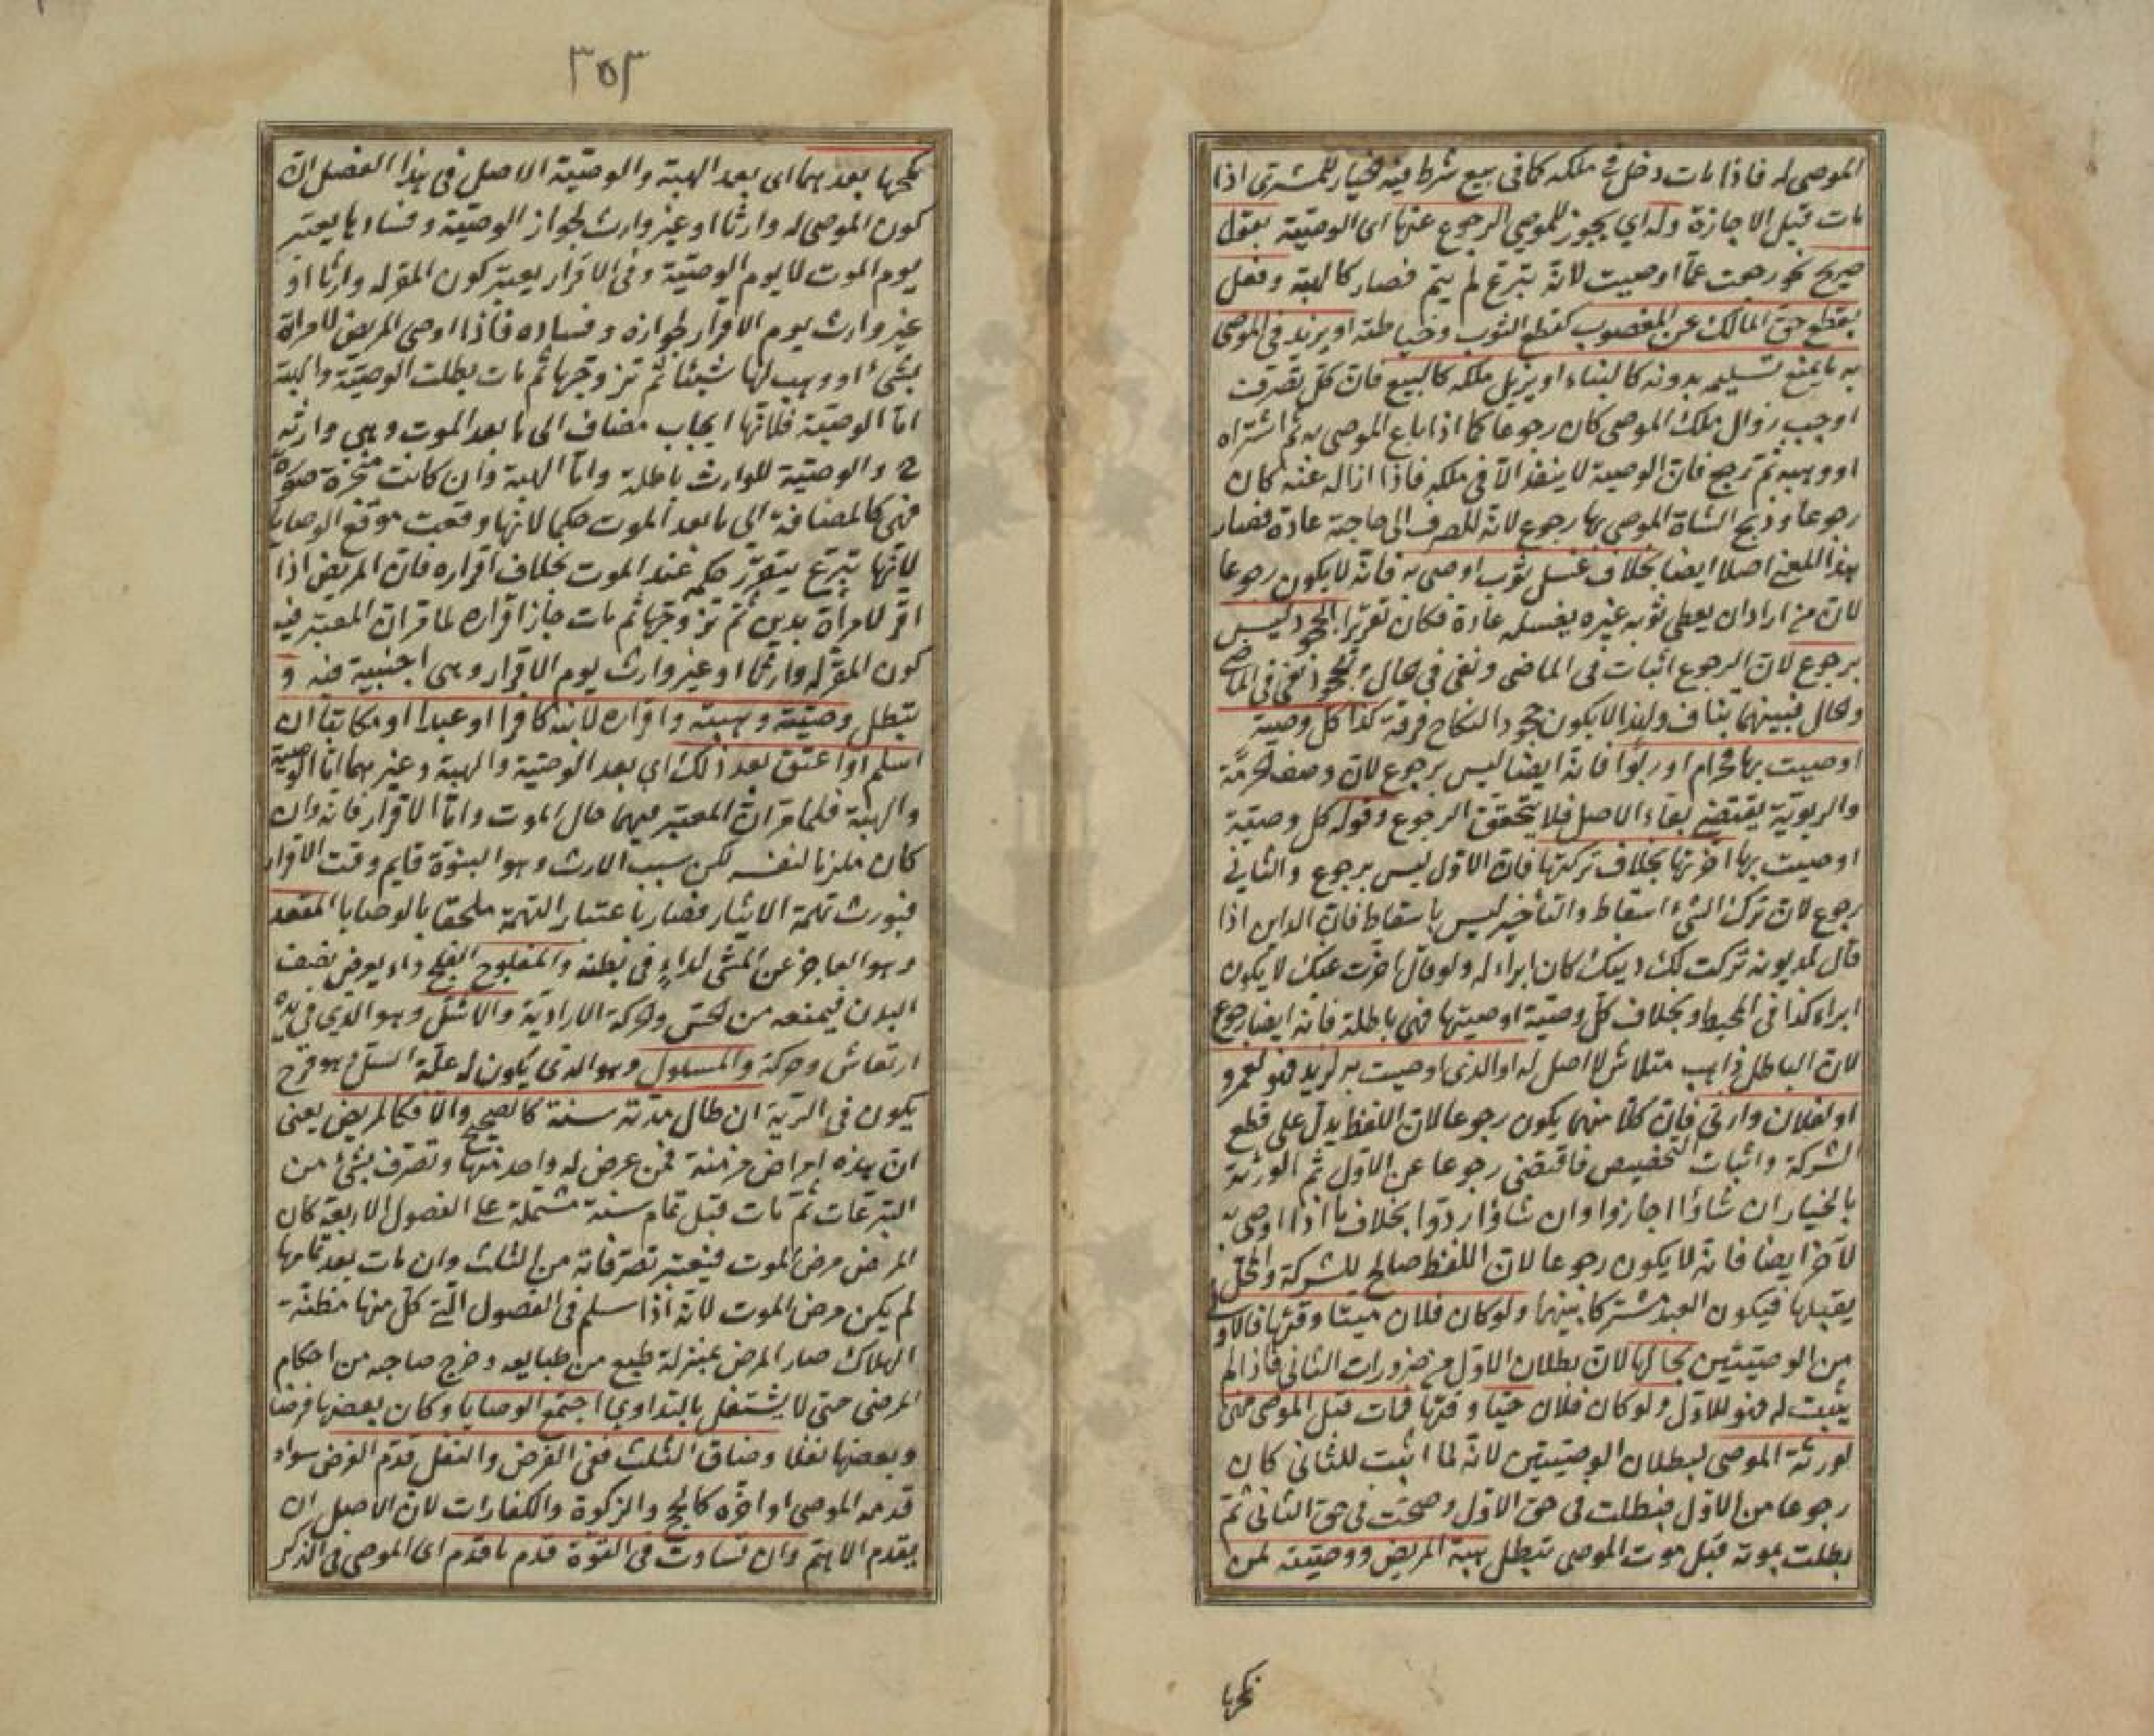 الموصى له فاذا مات دخل في ملكه كما في بيع شرط فيه الخيار للمشترى اذا
مات قبل الاجازة وله اي يجوز للموصي الرجوع عنها اى الوصيّة بقول
صريح نحو رجعت عمّا اوصيت لانّه تبرّع لم يتم فصار كالهبة وفعل
يقطع حق المالك عن المغصوب كقطع الثوب وخياطته او يزيد في الموصى
به ما يمنع تسليمه بدونه كالبناء او يزيل ملكه كالبيع فان كل تصرف
اوجب زوال ملك الموصى كان رجوعا كما اذا باع الموصى به ثم اشتراه
او وهبه ثم رجع فان الوصية لا ينفذ الّا في ملكه فاذا ازاله عنه كان
رجوعا وذبح الشاة الموصى بها رجوع لانّه للصرف الى حاجته عادة فصار
هذا المعنى اصلا ايضا بخلاف غسل ثوب اوصى به فانّه لا يكون رجوعا
لانّ من اراد ان يعطى ثوبه غيره يغسله عادة فكان تقريرا الجحود ليس
برجوع لان الرجوع اثبات في الماضى ونفى في الحال والجحود نفى في الماضى
والحال فبينهما تناف ولهذا لا يكون جحود النكاح فرقة كذا كل وصية
اوصيت بها فحرام او ربوا فانّه ايضا ليس برجوع لانّ وصف الحرمة
والربويّة يقتضى بقاء الاصل فلا يتحقق الرجوع وقوله كل وصيّة
اوصيت بها اخّرتها بخلاف تركتها فان الاوّل ليس برجوع والثانى
رجوع لان ترك الشئ اسقاط والتأخير ليس باسقاط فان الداين اذا
قال لمديونه تركت لك دينك كان ابراء له ولو قال اخرت عنك لا يكون
ابراء كذا في المحيط وبخلاف كل وصيّة اوصيتها فهى باطلة فانه ايضا رجوع
لان الباطل ذاهب متلاش لا اصل له او الذى اوصيت به لزيد فهو لعمرو
او لفلان وارثى فان كلّا منهما يكون رجوعا لان اللفظ يدل على قطع
الشركة واثبات التخصيص فاقتضى رجوعا عن الاول ثم الورثة
بالخيار ان شاؤا اجازوا وان شاؤا ردّوا بخلاف ما اذا اوصى به
لآخر ايضا فانّه لا يكون رجوعا لان اللفظ صالح للشركة والمحل
يقبلها فيكون العبد مشتركا بينهما ولو كان فلان ميتا وقتها فالاولى
من الوصيّتين بحالها لان بطلان الاوّل من ضرورات الثانى فاذا لم
يثبت له فهو للاوّل ولو كان فلان حيّا وقتها فمات قبل الموصى فهى
لورثة الموصى لبطلان الوصيّتين لانّه لما اثبت للثانى كان
رجوعا من الاوّل فبطلت في حق الاوّل وصحّت في حق الثانى ثمّ
بطلت بموته قبل موت الموصى تبطل هبة المريض ووصيّته لمن
نكحها
٣٥٣
نكحها بعدهما اى بعد الهبة والوصيّة الاصل في هذا الفصل ان
كون الموصى له وارثا او غير وارث لجواز الوصيّة وفسادها يعتبر
يوم الموت لا يوم الوصيّة وفى الاقرار يعتبر كون المقر له وارثا او
غير وارث يوم الاقرار لجوازه وفساده فاذا اوصى المريض لامراة
بشئ او وهب لها شيئا ثم تزوجها ثم مات بطلت الوصيّة والهبة
امّا الوصيّة فلانّها ايجاب مضاف الى ما بعد الموت وهى وارثه
ح والوصيّة للوارث باطلة وامّا الهبة وان كانت منجزة صورة
فهى كالمضافة الى ما بعد الموت حكما لانها وقعت موقع الوصايا
لانّها تبرّع يتقرّر حكمه عند الموت بخلاف اقراره فان المريض اذا
اقر لامرأة بدين ثم تزوجها ثم مات جاز اقراره لما مر ان المعتبر فيه
كون المقرّ له وارثا او غير وارث يوم الاقرار وهى اجنبية فيه و
تبطل وصيّته وهبته واقراره لابنه كافرا او عبدا او مكاتبا ان
اسلم او اعتق بعد ذلك اي بعد الوصيّة والهبة وغيرهما امّا الوصيّة
والهبة فلما مر ان المعتبر فيهما حال الموت وامّا الاقرار فانه وان
كان ملزما لنفسه لكن سبب الارث وهو البنوّة قايم وقت الاقرار
فيورث تهمة الايثار فصار باعتبار التهمة ملحقا بالوصايا المقعد
وهو العاجز عن المشى لداء في بطنه والمفلوج الفلج داء يعرض نصف
البدن فيمنعه من الحسّ والحركة الاراديّة والاشلّ وهو الذي في يده
ارتعاش وحركة والمسلول وهو الذى يكون له علّة السل وهو قرح
يكون في الريّة ان طال مدّته سنة كالصحيح والّا فكالمريض يعنى
ان هذه امراض مزمنة فمن عرض له واحد منها وتصرّف بشئ من
التبرّعات ثم مات قبل تمام سنة مشتملة على الفصول الاربعة كان
المرض مرض الموت فيعتبر تصرّفاته من الثلث وان مات بعد تمامها
لم يكن مرض الموت لانّه اذا سلم في الفصول الّتى كل منها مظنّة
الهلاك صار المرض بمنزلة طبع من طبايعه وخرج صاحبه من احكام
المرضى حتى لا يشتغل بالتداوى اجتمع الوصايا وكان بعضها فرضا
وبعضها نفلا وضاق الثلث ففى الفرض والنفل قدّم الفرض سواء
قدمه الموصى او اخّره كالحج والزكوة والكفارات لان الاصل ان
يقدم الاهم وان تساوت في القوّة قدم ما قدم اى الموصى في الذكر